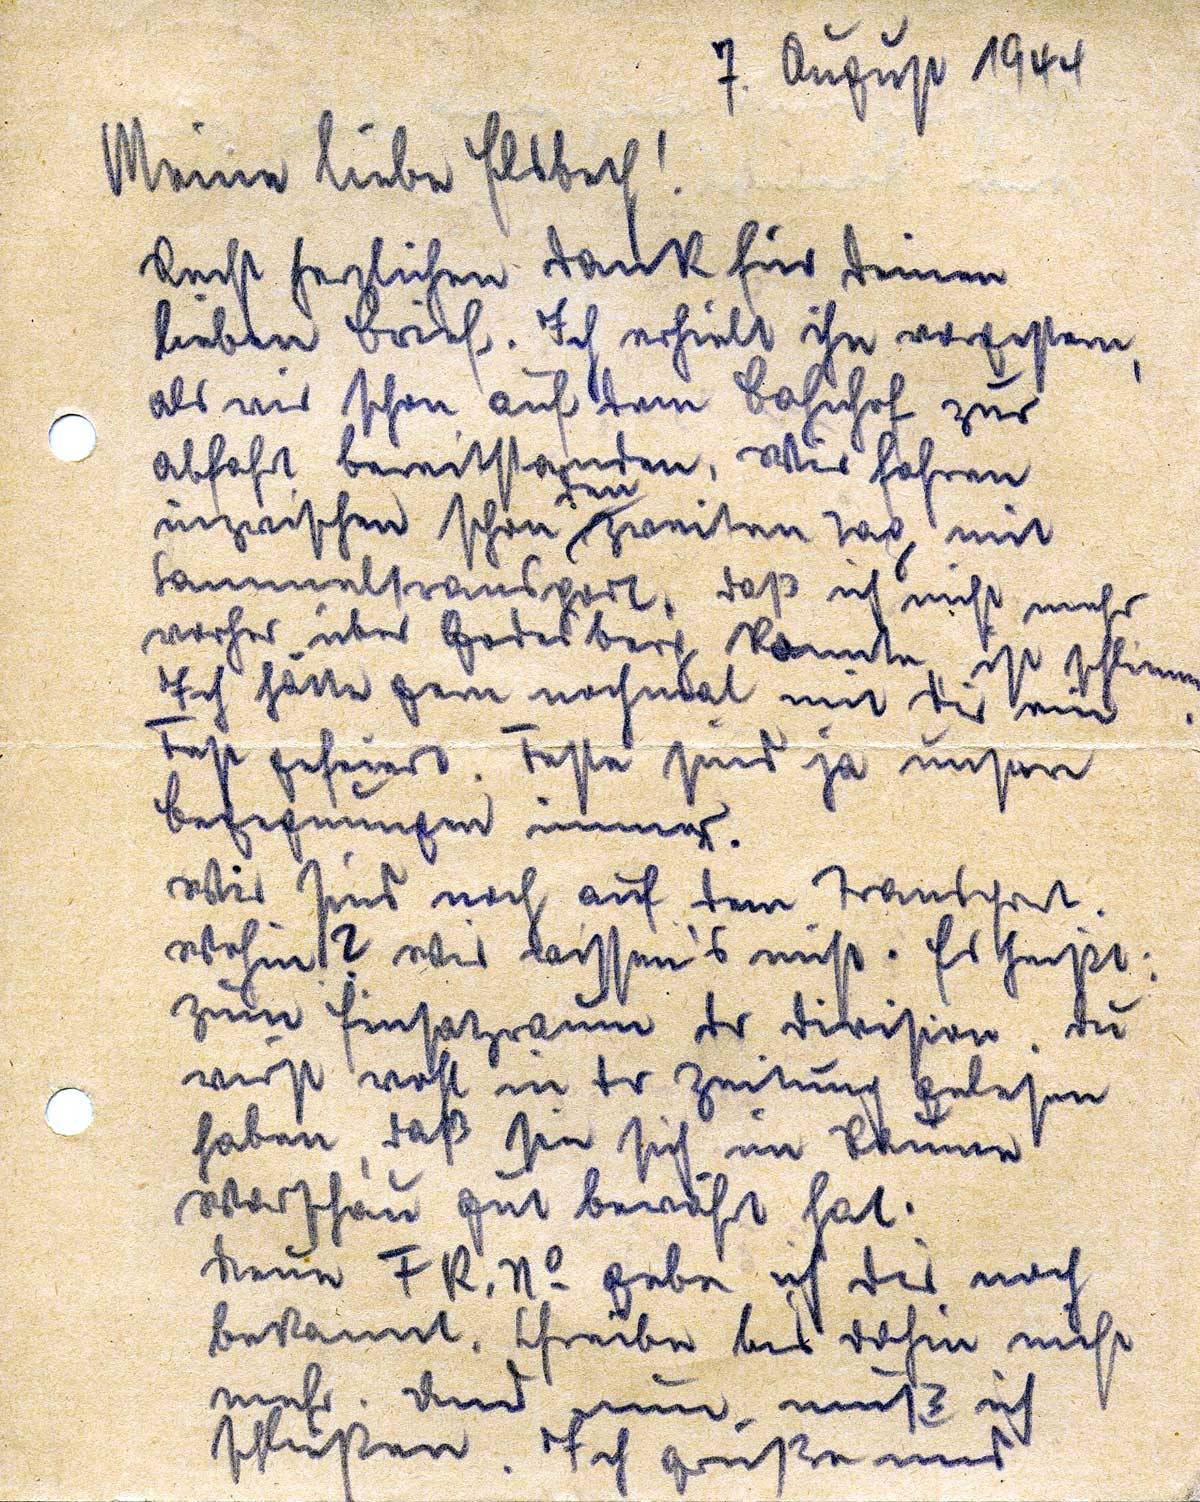 7. August 1944
Meine liebe Elsbeth!
Recht herzlichen Dank für Deinen
lieben Brief. Ich erhielt ihn vorgestern,
als wir schon auf dem Bahnhof zur
Abfahrt bereitstanden. Wir fahren
inzwischen schon den zweiten Tag mit
Sammeltransport. Daß ich nicht mehr
vorher über Godesberg konnte, ist schlimm.
Ich hätte gern nochmal mit Dir ein
Fest gefeiert. Feste sind ja unsere
Begegnungen immer.
Wir sind noch auf dem Transport.
Wohin? Wir wissen's nicht. Es heißt:
zum Einsatzraum der Division. Du
wirst wohl in der Zeitung gelesen
haben, daß sie sich im Raume
Warschau gut bewährt hat.
Neue F.K. No gebe ich Dir noch
bekannt. Schreibe bis dahin nicht
mehr. Und nun muß ich
schließen. Ich grüße und